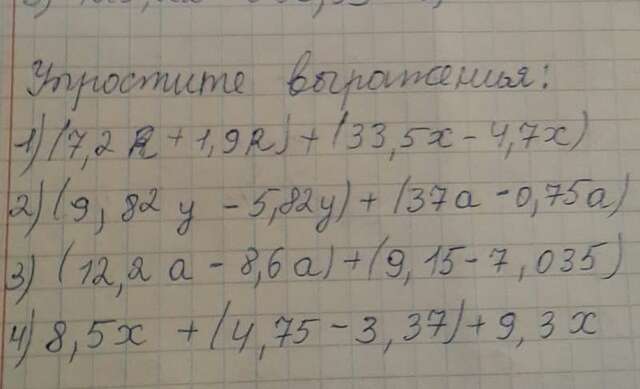 Упростите выражения:
1) (7,2k + 1,9k) + (33,5x - 4,7x)
2) (9,82y - 5,82y) + (37a - 0,75a)
3) (12,2a - 8,6a) + (9,15 - 7,035)
4) 8,5x + (4,75 - 3,37) + 9,3x